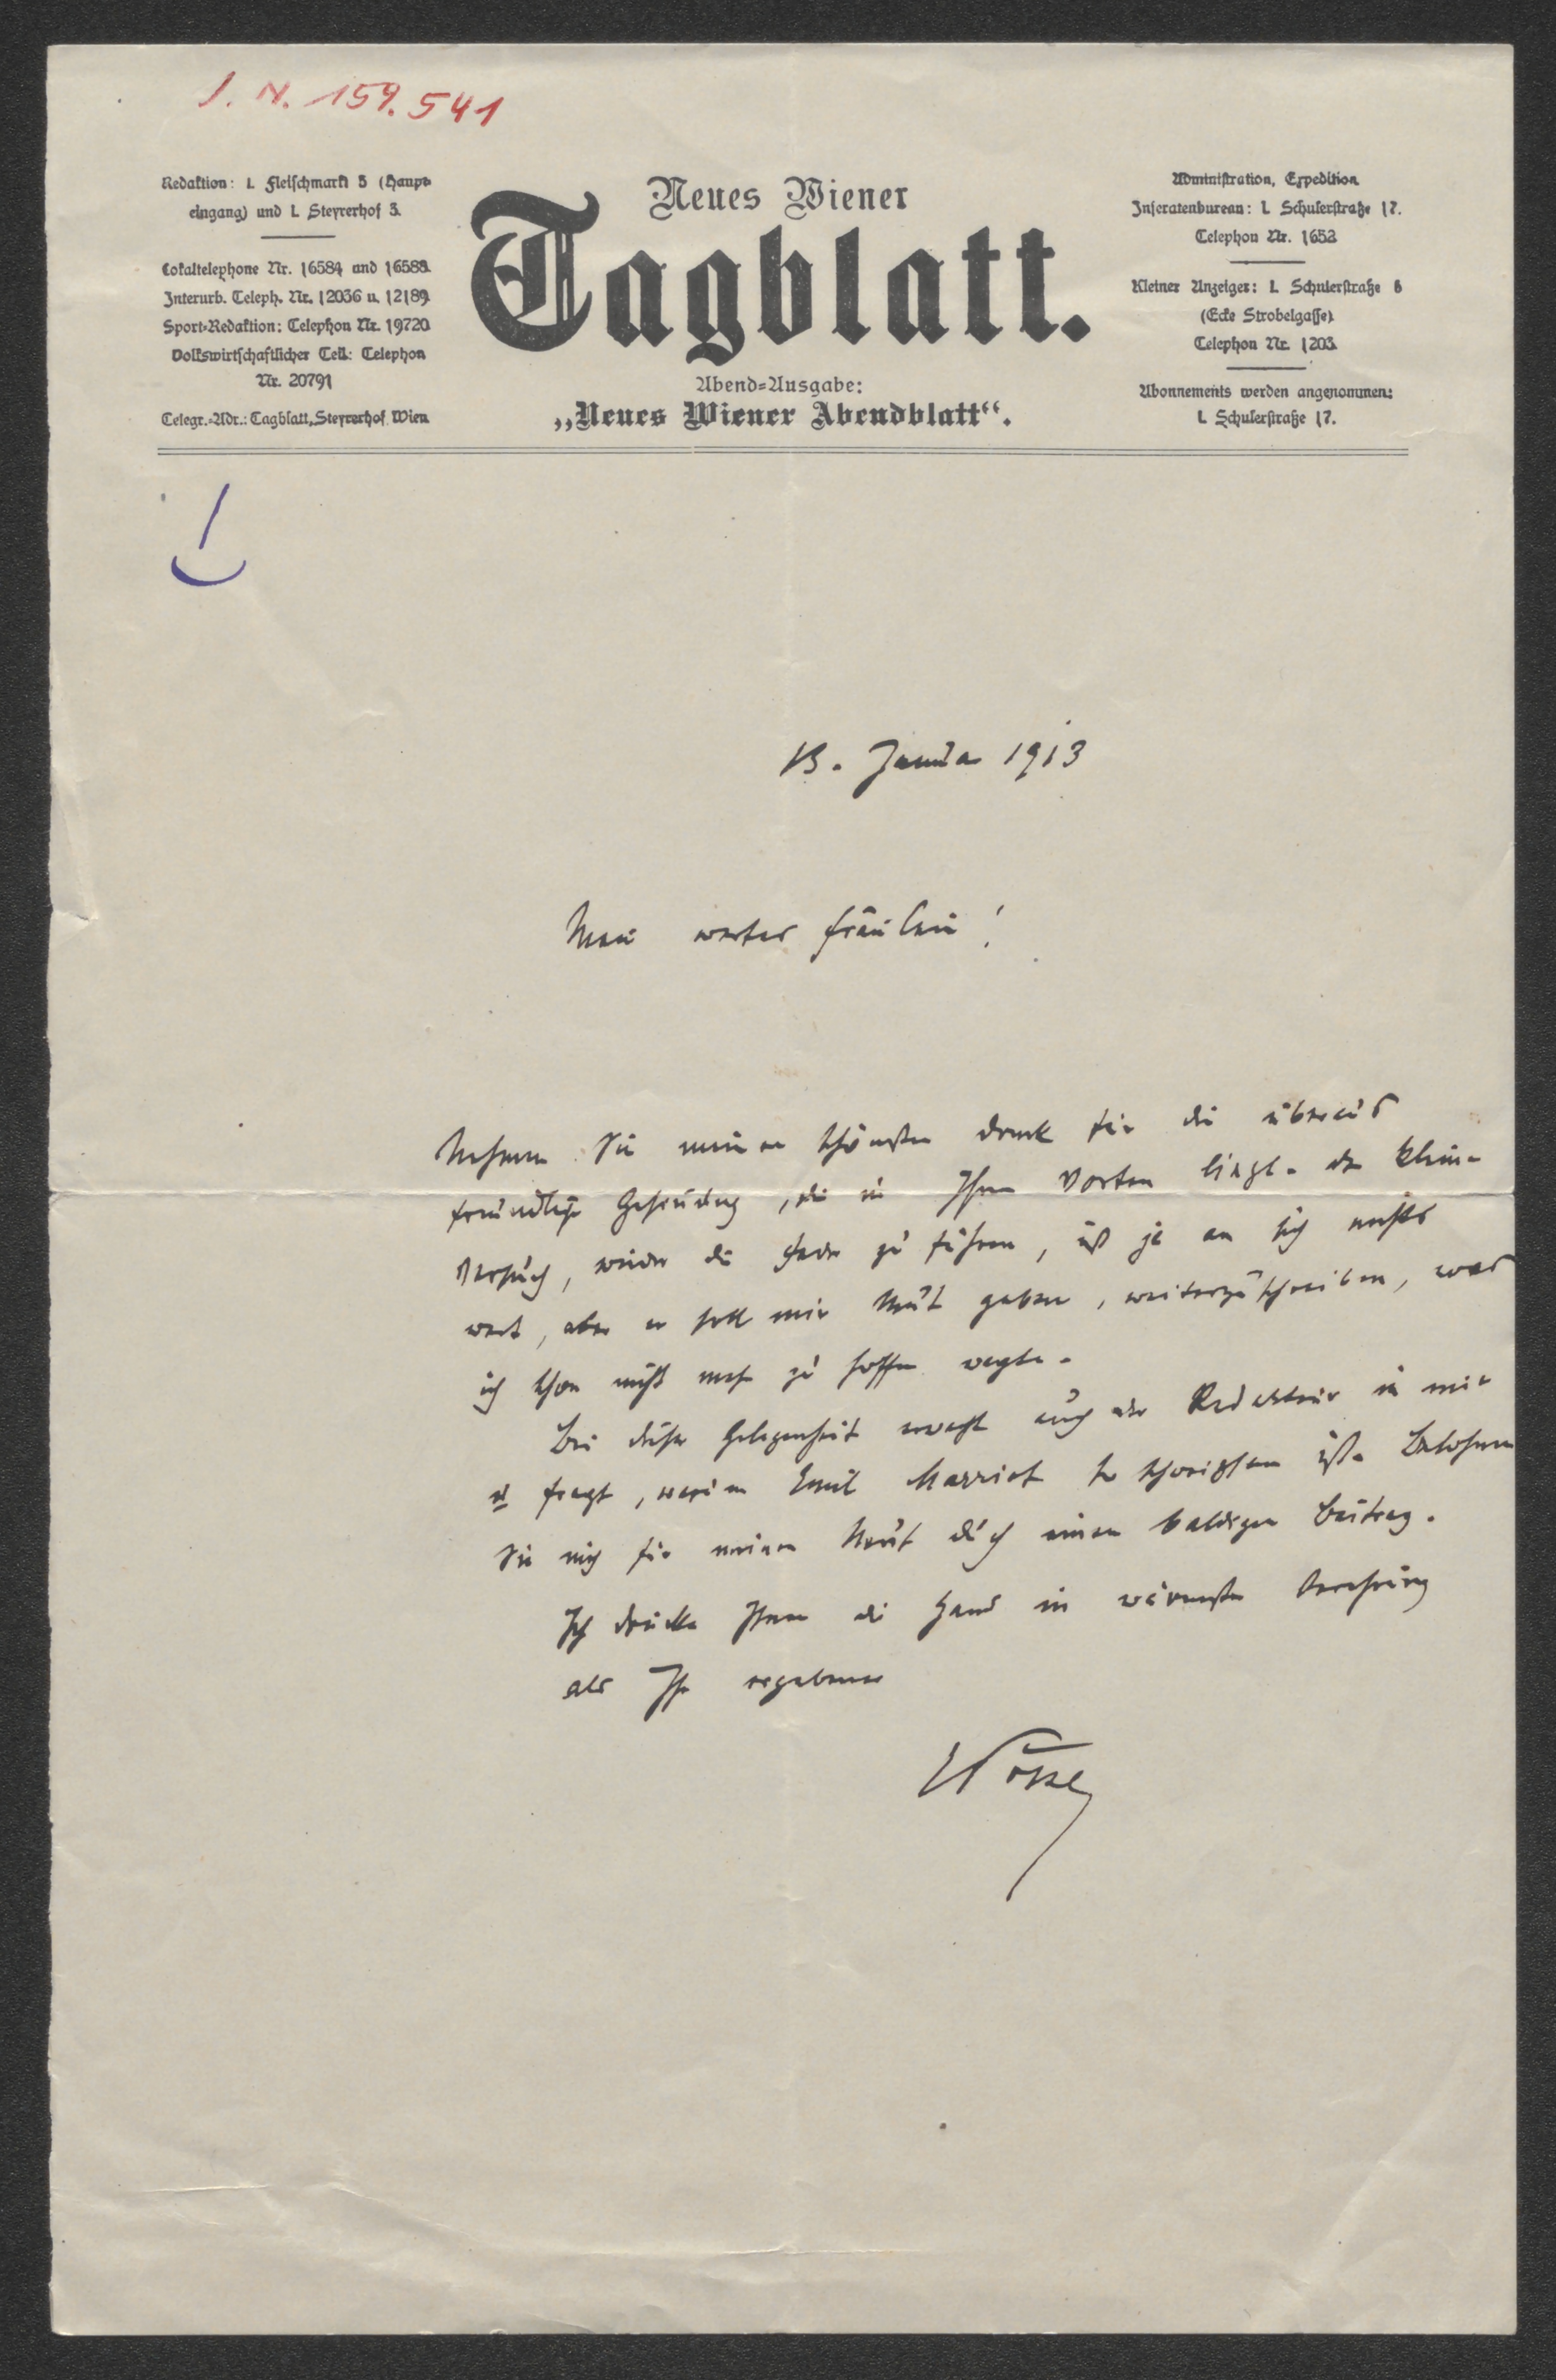 I. N. 159.541
Redaktion: I. Fleischmarkt 5 (Haupt-
eingang) und I. Steyrerhof 3.
Lokaltelephone Nr. 16584 und 16588.
Interurb. Teleph. Nr. 12036 u. 12189.
Sport-Redaktion: Telephon Nr. 19720.
Volkswirtschaftlicher Teil: Telephon
Nr. 20791
Telegr.-Adr.: Tagblatt, Steyrerhof Wien.
Neues Wiener
Tagblatt.
Abend-Ausgabe:
„Neues Wiener Abendblatt“.
Administration, Expedition
Inseratenbureau: I. Schulerstraße 17.
Telephon Nr. 1652
Kleiner Anzeiger: I. Schulerstraße 6
(Ecke Strobelgasse).
Telephon Nr. 1203.
Abonnements werden angenommen:
I. Schulerstraße 17.
13. Januar 1913
Mein wertes Fräulein!
Nehmen Sie meinen schönsten Dank für die überaus
freundliche Gesinnung, die in Ihren Worten liegt. Der kleine
Versuch, wieder die Feder zu führen, ist ja an sich nichts
wert, aber er soll mir Mut geben, weiterzuschreiben, was
ich schon nicht mehr zu hoffen wagte.
Bei dieser Gelegenheit erwacht auch der Redakteur in mir
u fragt, warum Emil Marriot so schweigsam ist. Belohnen
Sie mich für meinen Mut durch einen baldigen Beitrag.
Ich drücke Ihnen die Hand in wärmster Verehrung
als Ihr ergebener